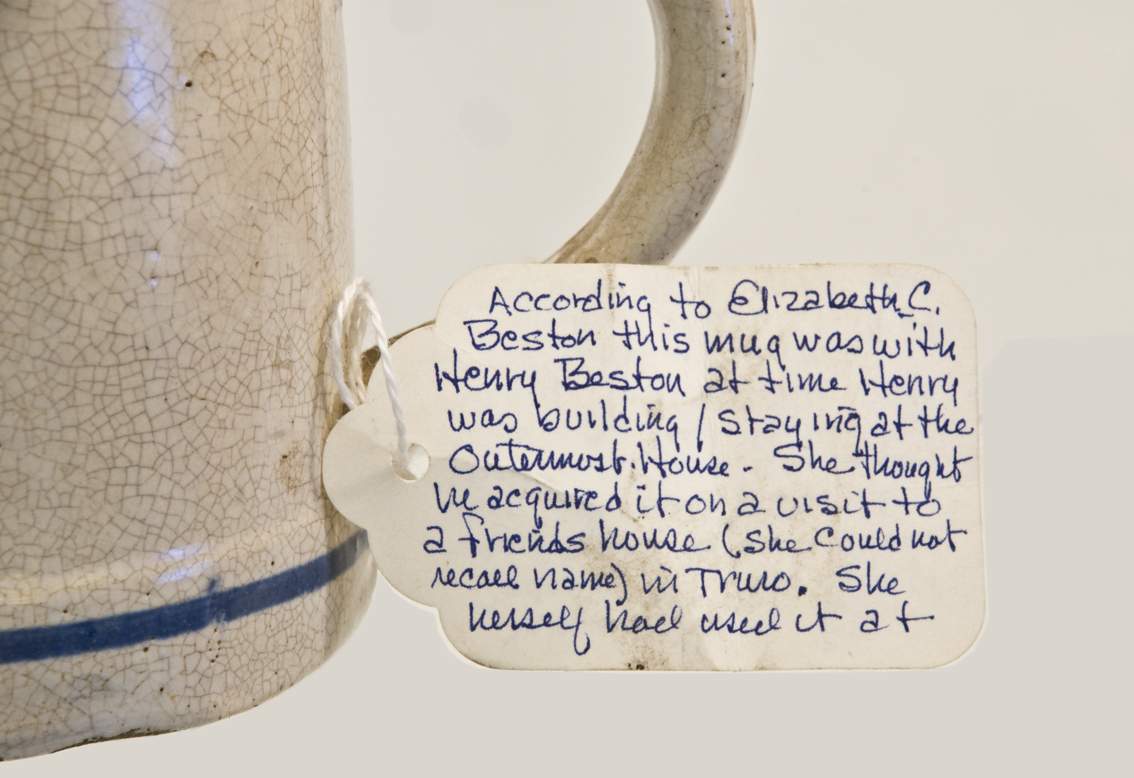 According to Elizabeth C.
Beston this mug was with
Henry Beston at time Henry
was building / staying at the
Outermost House. She thought
he acquired it on a visit to
a friends house (she could not
recall name) in Truro. She
herself had used it at